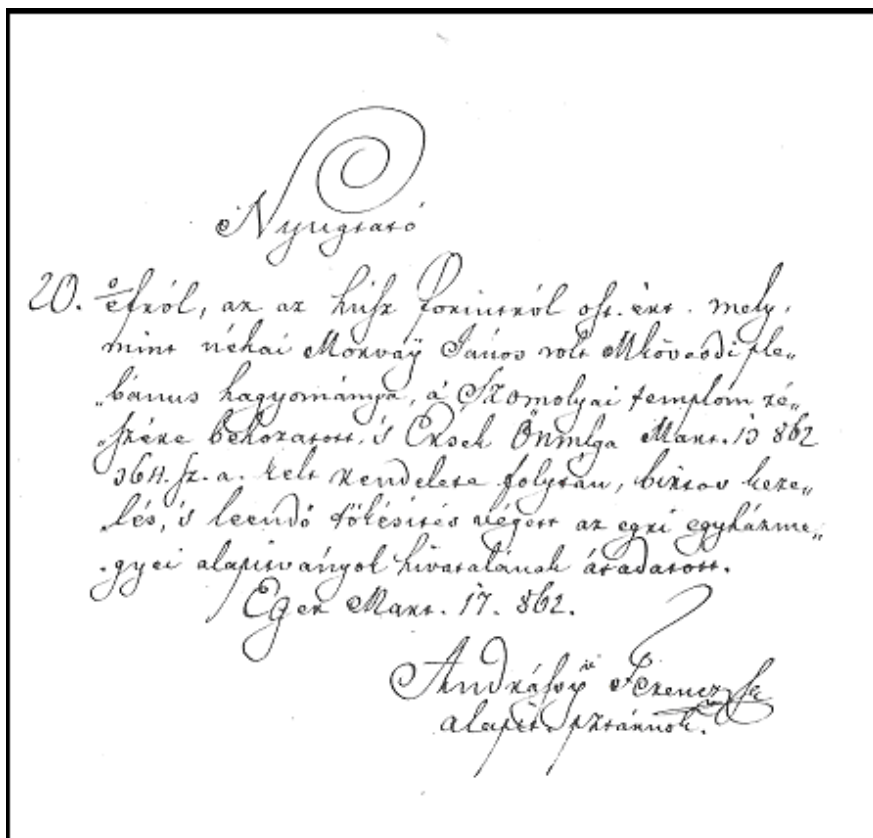 Nyugtató
20. o/e frról, az az húsz forintról ost. ért. mely,
mint néhai Morvaÿ János volt Mkövesdi ple„
„bánus hagyománya, a Szomolyai templom ré„
„szére behozatott, 's Érsek Önmlga Mart. 13 862
964. sz. a. kelt rendelete folytán, biztos keze„
lés, 's leendő tőkésités végett az egri egyházme„
„gyei alapitványok hivatalának átadatott.
Eger Mart. 17. 862.
Andrásy Ferencz
alapit. pztárnok.